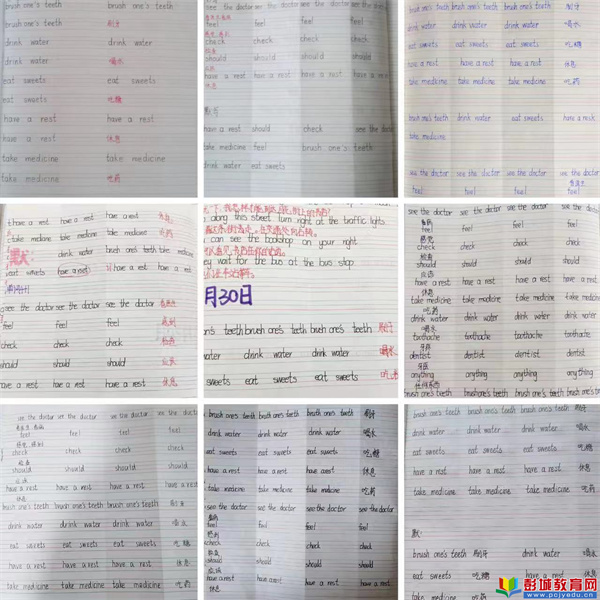 brush one's teeth brush one's teeth
brush one's teeth 刷牙
drink water drink water
drink water 喝水
eat sweets eat sweets
eat sweets 吃糖
have a rest have a rest
have a rest 休息
take medicine take medicine
take medicine 吃药
see the doctor see the doctor see the doctor see the
feel feel feel feel
check check check check
should should should should
have a rest have a rest have a rest have a rest
休息
默写
have a rest should check see the do
take medicine feel brush one's teeth
drink water eat sweets
brush one's teeth brush one's teeth brush one's teeth 刷牙
drink water drink water drink water 喝水
eat sweets eat sweets eat sweets 吃糖
have a rest have a rest have a rest 休息
take medicine take medicine take medicine 吃药
brush one's teeth drink water eat sweets have a rest
take medicine
see the doctor see the doctor see the doctor
feel feel feel
have a rest have a rest have a rest 休息
take medicine take medicine take medicine 吃药
默:
drink water brush one's teeth take medicine
eat sweets have a rest
see the doctor see the doctor see the doctor
feel feel feel 感到
check check check 检查
should should should 应该
have a rest have a rest have a rest 休息
along this street turn right at the traffic lights
can see the bookshop on your right
ey wait for the bus at the bus stop
月30日
one's teeth brush one's teeth brush one's teeth 刷牙
water drink water drink water 喝水
sweets eat sweets eat sweets 吃糖
see the doctor see the doctor see the doctor see the doctor
看病
feel feel feel feel
感觉
check check check check
检查
should should should should
应该
have a rest have a rest have a rest have a rest
休息
take medicine take medicine take medicine take medicine
吃药
drink water drink water drink water drink water
喝水
toothache toothache toothache toothache
牙疼
dentist dentist dentist dentist
牙医
anything anything anything anything
任何东西
brush one's teeth brush one's teeth brush one's teeth brush one's
see the doctor see the doctor see the doctor see the doctor
feel feel feel feel
check check check check
检查
should should should should
应该
have a rest have a rest have a rest have a rest
休息
brush one's teeth brush one's teeth brush one's teeth 刷牙
drink water drink water drink water 喝水
eat sweets eat sweets eat sweets 吃糖
have a rest have a rest have a rest 休息
take medicine take medicine take medicine 吃药
brush one's teeth brush one's teeth brush one's teeth 刷牙
drink water drink water drink water 喝水
eat sweets eat sweets eat sweets 吃糖
have a rest have a rest have a rest 休息
take medicine take medicine take medicine 吃药
see the doctor see the doctor see the doctor see the doctor
看病
feel feel feel feel
感到
check check check check
检查
should should should should
应该
have a rest have a rest have a rest have a rest
休息
brush one's teeth brush one's teeth brush one's teeth 刷牙
drink water drink water drink water 喝水
eat sweets eat sweets eat sweets 吃糖
have a rest have a rest have a rest 休息
take medicine take medicine take medicine 吃药
默:
brush one's teeth 刷牙 drink water 喝水
eat sweets 吃糖 have a rest 休息
take medicine 吃药
彭城教育网
www.pcjyedu.cn